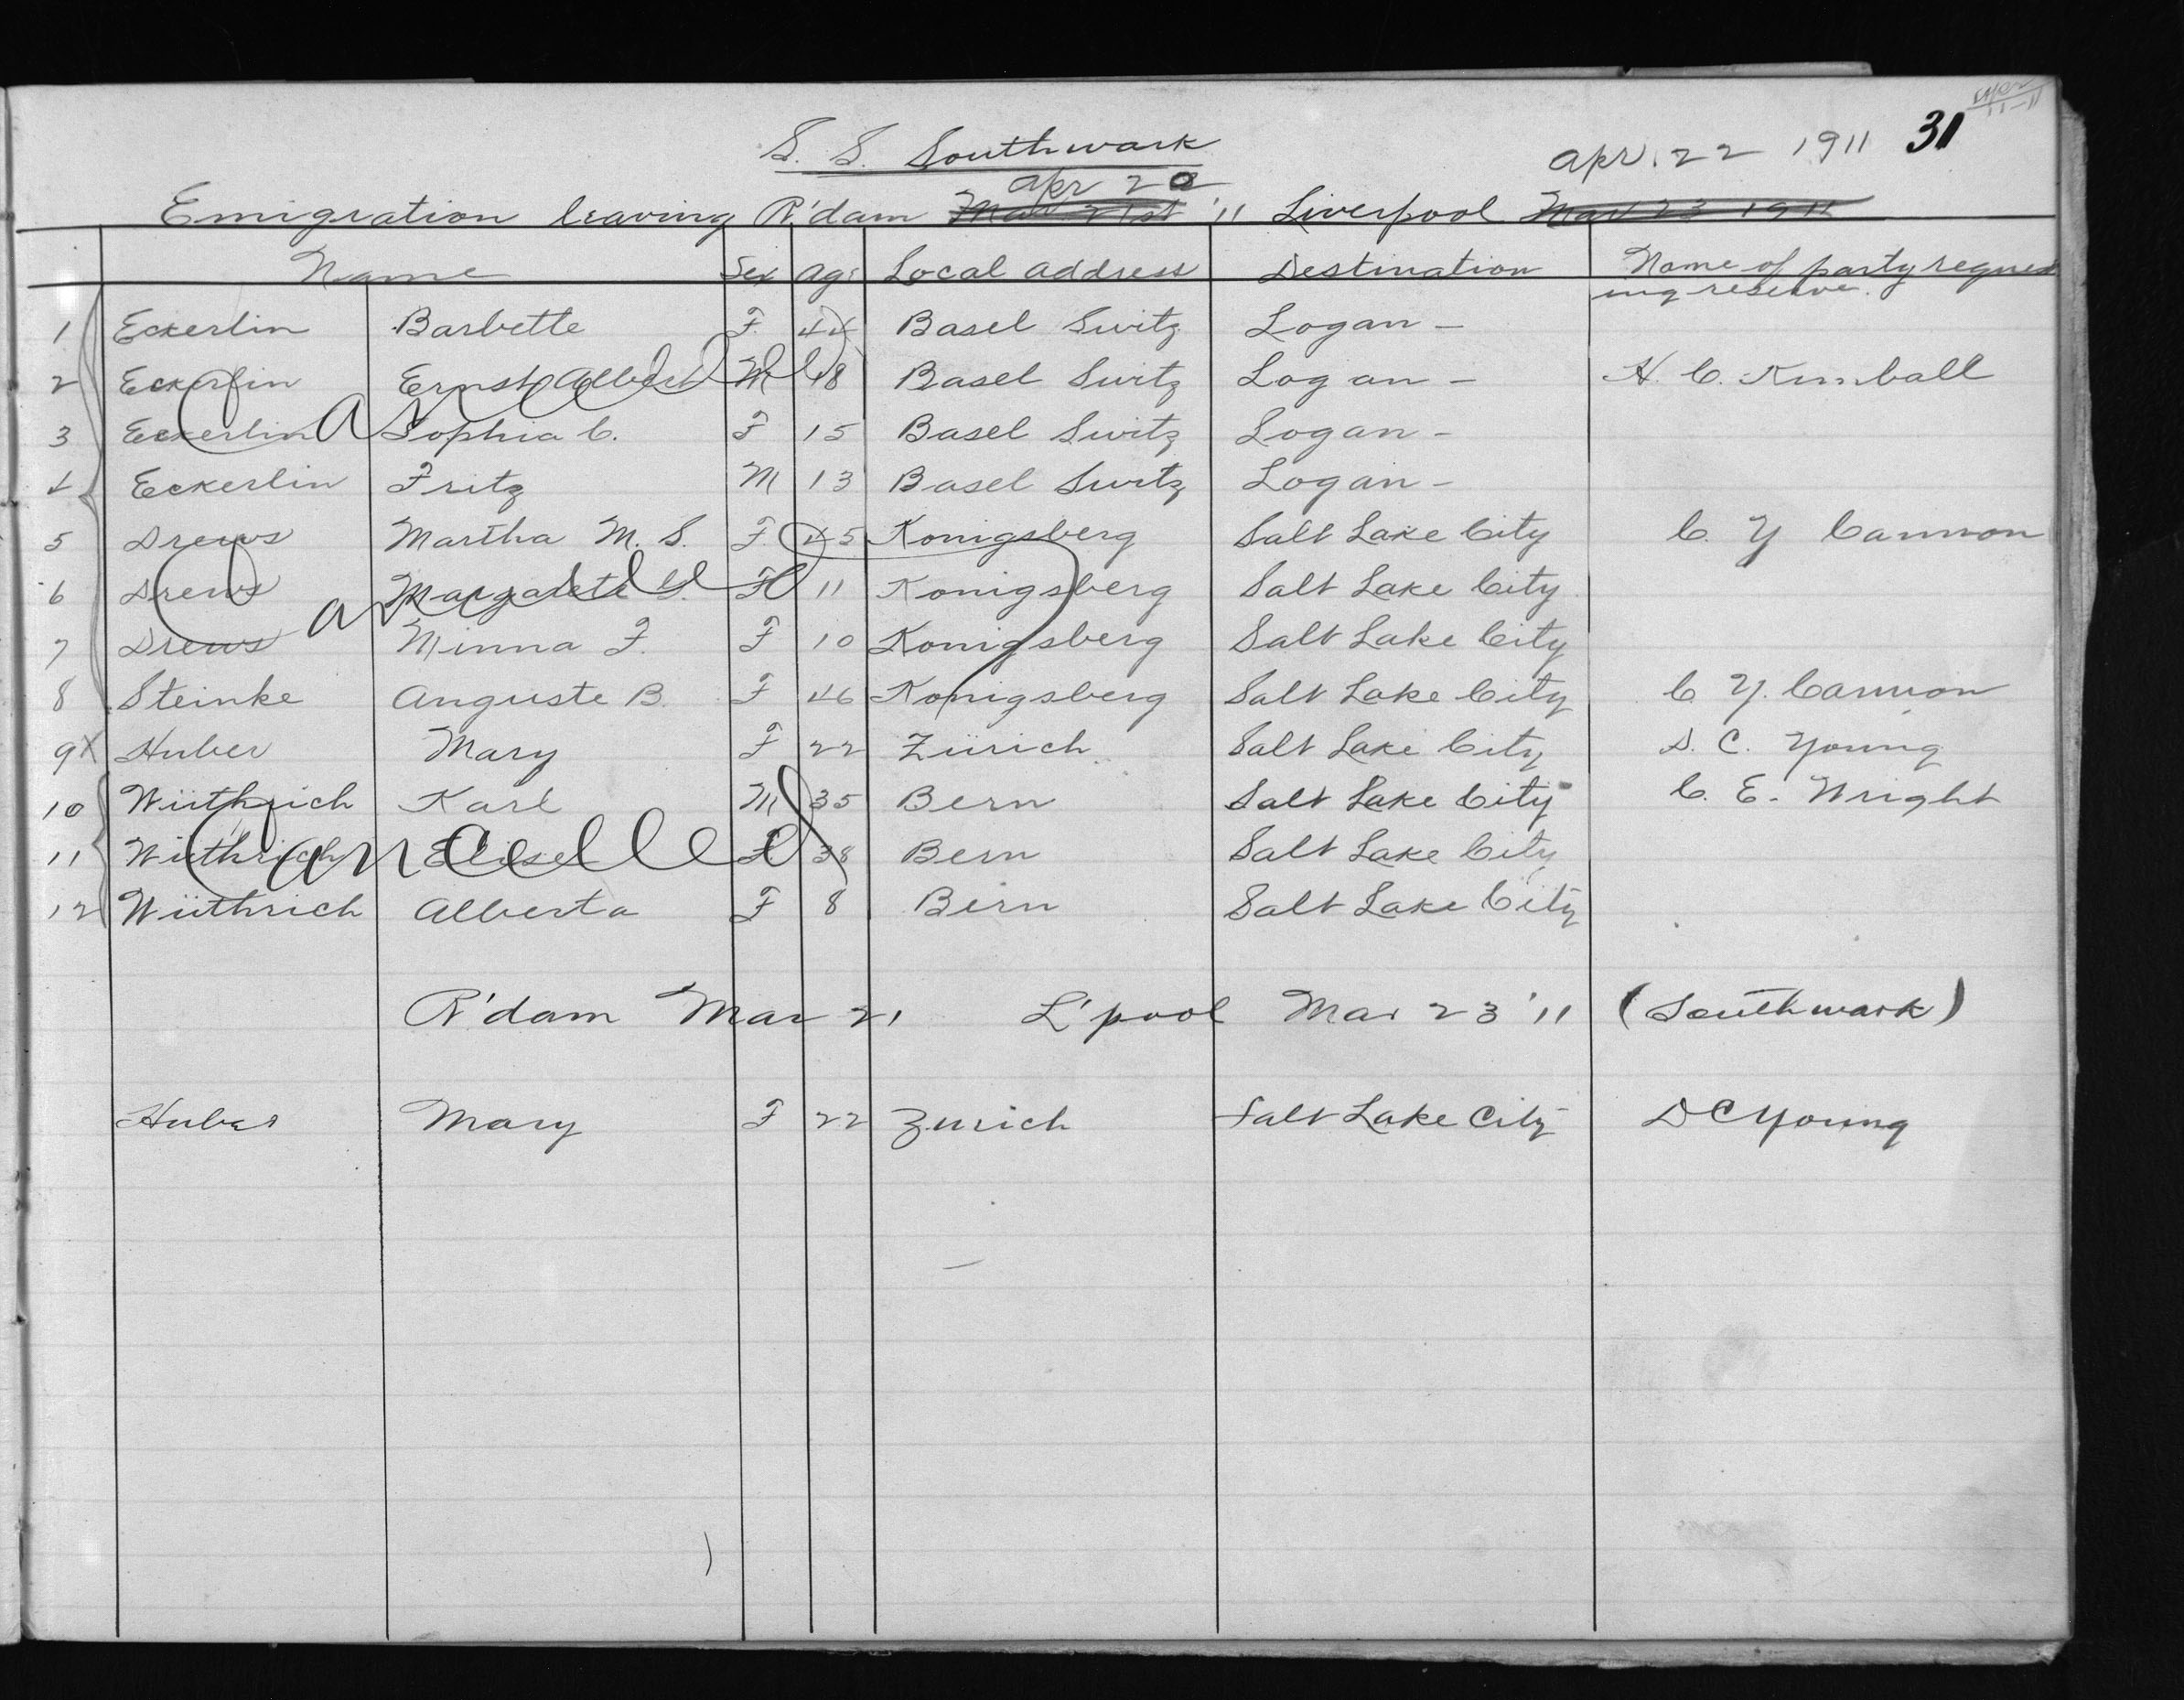 31
S. S. Southwark
Apr. 22 1911
Apr 20
Emigration leaving R'dam Mar 21st '11 Liverpool Mar 23 1911
Name Sex Age Local address Destination Name of party request
ing reserve.
1 Eckerlin Barbette F. 44 Basel Switz Logan -
2 Eckerlin Ernst Albert M 18 Basel Switz Logan - H. C. Kimball
Cancelled
3 Eckerlin Sophia C. F 15 Basel Switz Logan -
4 Eckerlin Fritz M 13 Basel Switz Logan -
5 Drews Martha M. S. F. 45 Konigsberg Salt Lake City C. Y Cannon
6 Drews Margarete F 11 Konigsberg Salt Lake City
Cancelled
7 Drews Minna F. F 10 Konigsberg Salt Lake City
8 Steinke Auguste B. F 46 Konigsberg Salt Lake City C Y. Cannon
9 X Huber Mary F 22 Zürich Salt Lake City D. C. Young
10 Wüthrich Karl M 35 Bern Salt Lake City C. E. Wright
11 Wüthrich Elise F 38 Bern Salt Lake City
Cancelled
12 Wüthrich Alberta F 8 Bern Salt Lake City
R'dam Mar 21 L'pool Mar 23 '11 (Southwark)
Huber Mary F 22 Zurich Salt Lake City D C Young